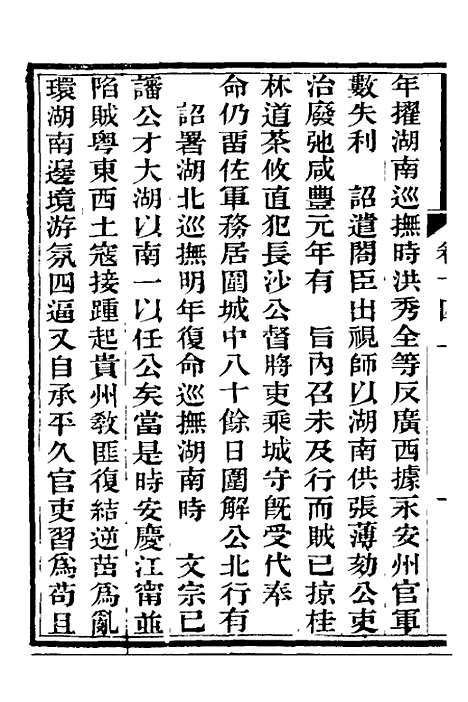 年擢湖南巡撫時洪秀全等反廣西據永安州官軍
數失利　詔遣閣臣出視師以湖南供張薄劾公吏
治廢弛咸豐元年有　旨內召未及行而賊已掠桂
林道茶攸直犯長沙公督將吏乘城守旣受代奉
命仍畱佐軍務居圍城中八十餘日圍解公北行有
詔署湖北巡撫明年復命巡撫湖南時　文宗已
讅公才大湖以南一以任公矣當是時安慶江甯並
陷賊粵東西土寇接踵起貴州敎匪復結逆苗爲亂
環湖南邊境游氛四逼又自承平久官吏習爲苟且